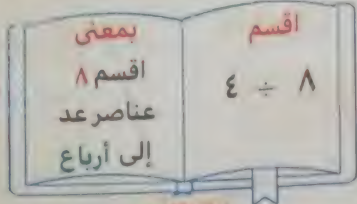 اقسم
٨ ÷ ٤
بمعنى
اقسم ٨
عناصر عد
إلى أرباع